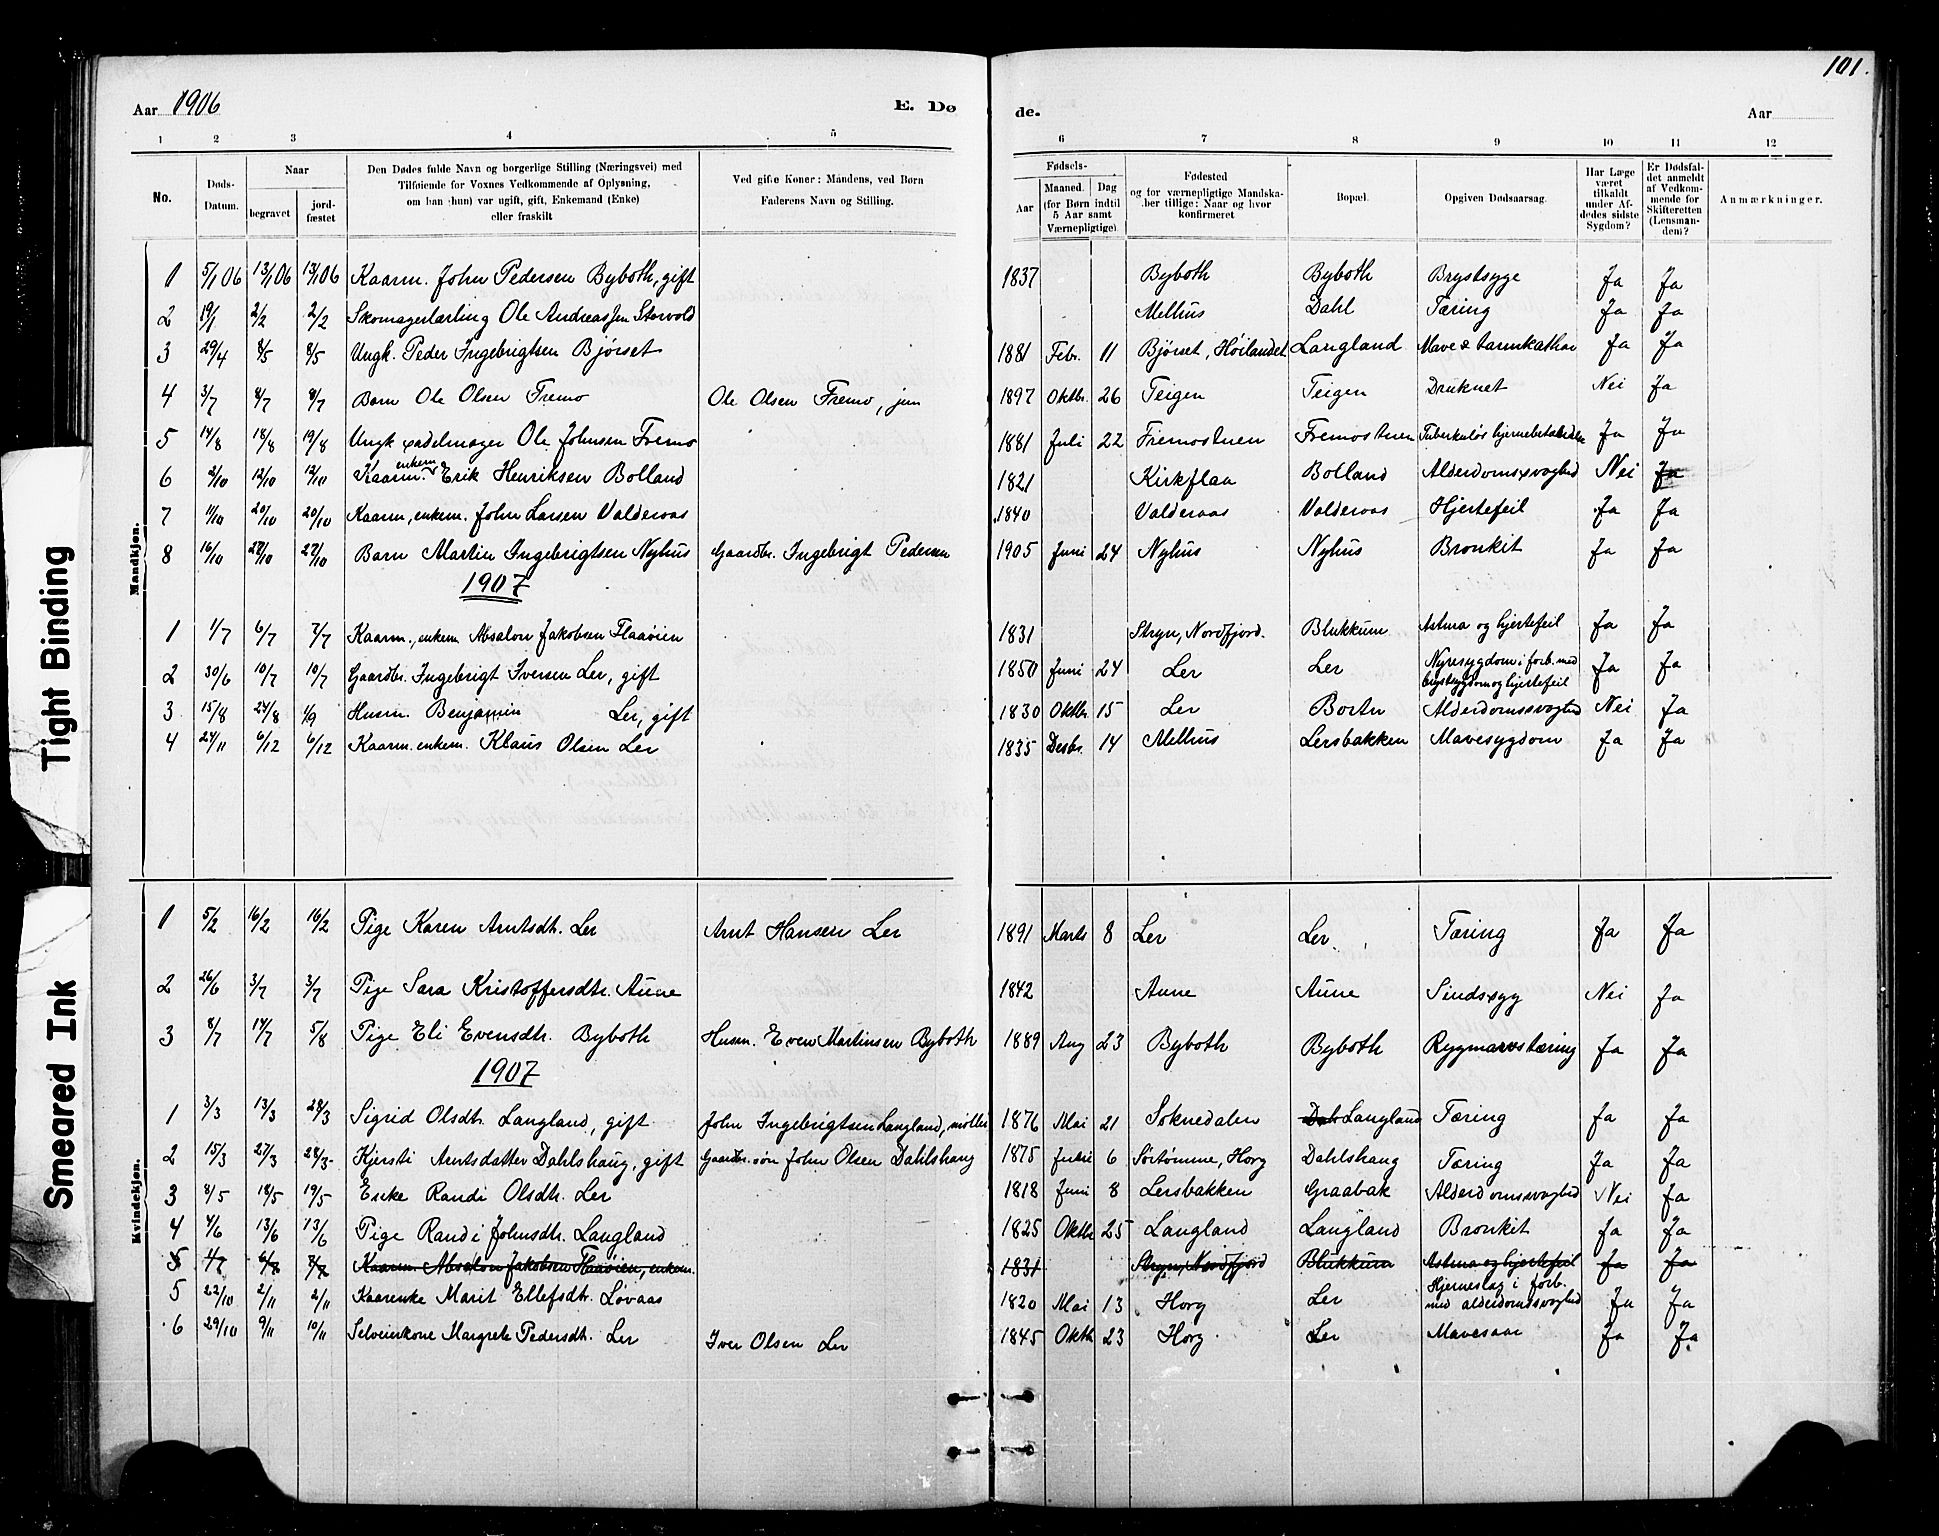 101.
Aar 1906 E. Dø de. Aar
1 2 3 4 5 6 7 8 9 10 11 12
No. Døds-Datum. Naar begravet jordfæstet Den Dødes fulde Navn og borgerlige Stilling (Næringsvei) med Tilføiende for Voxnes Vedkommende af Oplysning, om han (hun) var ugift, gift, Enkemand (Enke) eller fraskilt Ved gifte Koner: Mandens, ved Børn Faderens Navn og Stilling. Fødsels- Aar Maaned. Dag (for Børn indtil 5 Aar samt Værnepligtige). Fødested og for værnepligtige Mandskaber tillige: Naar og hvor konfirmeret Bopæl. Opgiven Dødsaarsag. Har Læge været tilkaldt under Afdødes sidste Sygdom? Er Dødsfaldet anmeldt af Vedkommende for Skifteretten (Lensmanden)? Anmærkninger.
Mandkjøn.
1 5/1 06 13/1 06 13/1 06 Kaarm. John Pedersen Byboth, gift 1837 Byboth Byboth Brystsyge Ja Ja
2 19/1 2/2 2/2 Skomagerlærling Ole Andreassen Storvold Melhus Dahl Tæring Ja Ja
3 29/4 8/5 8/5 Ungk. Peder Ingebrigtsen Bjørset 1881 Febr. 11 Bjørset, Høilandet Langland Mave & tarmkathar Ja Ja
4 3/7 8/7 8/7 Barn Ole Olsen Fremo Ole Olsen Fremo, jun 1897 Oktbr. 26 Teigen Teigen Druknet Nei Ja
5 14/8 18/8 19/8 Ungk. sadelmager Ole Johnsen Fremo 1881 Juli 22 Fremostuen Fremostuen Tuberkuløs hjernebetændelse Ja Ja
6 2/10 12/10 12/10 Kaarm. enkem. Erik Henriksen Bolland 1821 Kirkflaa Bolland Alderdomssvaghed Nei Ja
7 11/10 20/10 20/10 Kaarm, enkem. John Larsen Valderaas 1840 Valderaas Valderaas Hjertefeil Ja Ja
8 16/10 27/10 27/10 Barn Martin Ingebrigtsen Nyhus Gaardbr. Ingebrigt Pedersen 1905 Juni 24 Nyhus Nyhus Bronkit Ja Ja
1907
1 1/7 6/7 7/7 Kaarm., enkem Absalon Jakobsen Flaaøien 1831 Stryn, Nordfjord. Blukkum Astma og hjertefeil Ja Ja
2 30/6 10/7 10/7 Gaardbr. Ingebrigt Iversen Ler, gift 1850 Juni 24 Ler Ler Nyresygdom i forb. med brystsygdom og hjertefeil Ja Ja
3 15/8 24/8 1/9 Husm. Benjamin Ler, gift 1830 Oktbr. 15 Ler Alderdomssvaghed Nei Ja
4 24/11 6/12 6/12 Kaarm. enkem. Klaus Olsen Ler 1835 Desbr. 14 Melhus Lersbakken Mavesygdom Ja Ja
Kvindekjøn.
1 5/2 16/2 16/2 Pige Karen Arntsdtr. Ler Arnt Hansen Ler 1891 Marts 8 Ler Ler Tæring Ja Ja
2 26/6 3/7 3/7 Pige Sara Kristoffersdtr. Aune 1842 Aune Aune Sindssyg Nei Ja
3 8/7 14/7 5/8 Pige Eli Evensdtr. Byboth Husm. Even Martinsen Byboth 1889 Aug 23 Byboth Byboth Rygmarvstæring Ja Ja
1907
1 3/3 13/3 28/3 Sigrid Olsdtr. Langland, gift John Ingebrigtsen Langland, møller 1876 Mai 21 Soknedalen Dah Langland Tæring Ja Ja
2 15/3 27/3 28/3 Kjersti Arntsdatter Dahlshaug, gift Gaardbr.søn John Olsen Dahlshaug 1875 6 Sørtømme, Horg Dahlshaug Tæring Ja Ja
3 8/5 18/5 19/5 Enke Randi Olsdtr. Ler 1818 Juni 8 Lersbakken Graabak Alderdomssvaghed Nei Ja
4 4/6 13/6 13/6 Pige Randi Johnsdtr. Langland 1825 Oktbr 25 Langland Langland Bronkit Ja Ja
5 1/7 6/7 7/7 Kaarm. Absalon Jakobsen Flaaøien, enkem. 1831 Stryn, Nordfjord Blukkum Astma og hjertefeil Ja Ja
5 22/10 2/11 2/11 Kaarenke Marit Ellefsdtr. Løvaas 1820 Mai 13 Horg Ler Hjerneslag i forb. med alderdomssvaghed Ja Ja
6 29/10 9/11 10/11 Selveierkone Margrete Pedersdtr. Ler Iver Olsen Ler 1845 Oktb 23 Horg Ler Mavesaar Ja Ja
Tight Binding
Smeared Ink